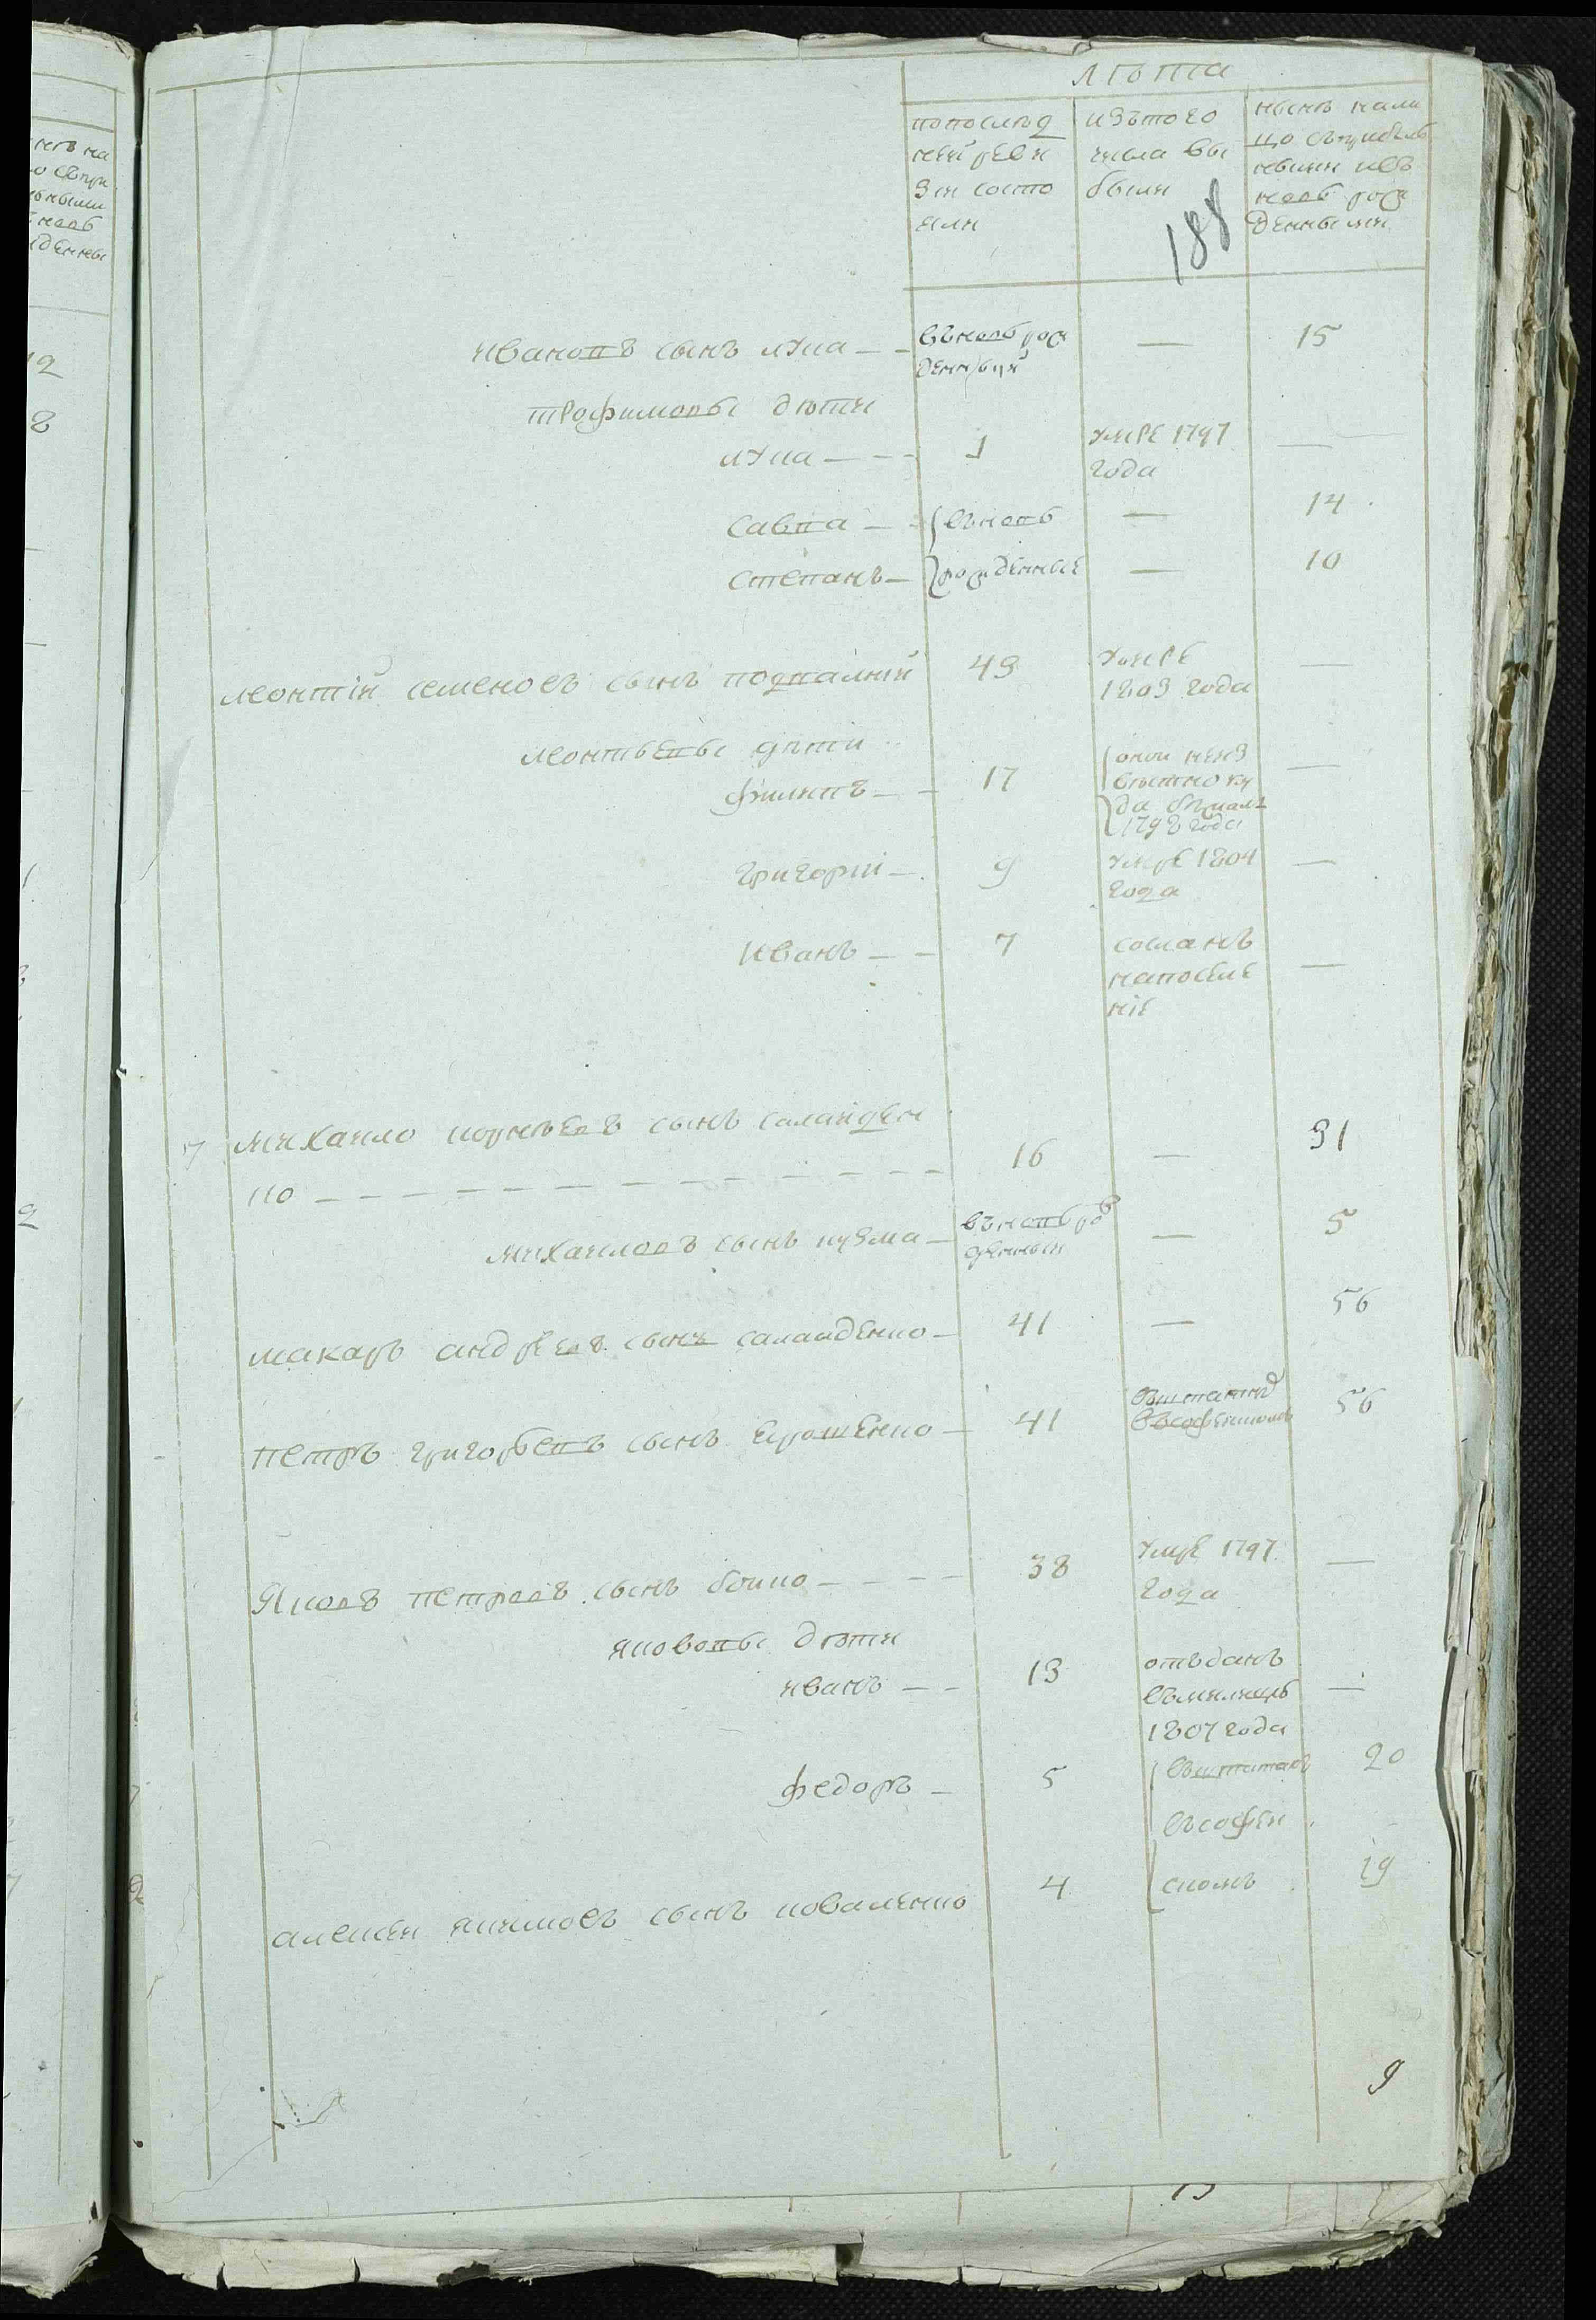 лѣта
по послѣд
ней реви
зіи состо
яли
изъ того
числа вы
были
нынѣ нали
цо съ прибыль
ными и въ
новь рож
денными
188
Ивановъ сынъ Лука — — вновь рож
денный — 15
Трофимовы дѣти
Лука — — — 1 умре 1797
года —
Савва — — вновь — 14
Степанъ — рожденные — 10
Леонтій Семеновъ сынъ 49 умре
1803 года —
Леонтьевы дѣти
Филипъ — — 17 оной неиз
вѣстно ку
да бѣжалъ
1798 года —
Григорій — 9 умре 1804
года —
Иванъ — — 7 сосланъ
на поселе
ніе —
7 Михайло Корнѣевъ сынъ Салайден
ко — — — — — — — — — — — — 16 — 31
Михайловъ сынъ Кузма — въ новь рож
денный — 5
Макаръ Андреевъ сынъ Салайденко — 41 — 56
Петръ Григорьевъ сынъ Ерошенко — 41 56
Яковъ Петровъ сынъ Бойко — — — — 38 умре 1797
года —
Яковovы дѣти
Иванъ — — 13 отъданъ
въ милицію
1807 года —
Федоръ — 5 20
Алексей Якимовъ сынъ Коваленко 4 19
9